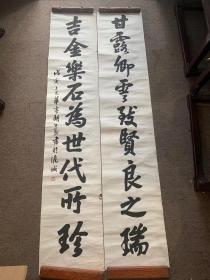 甘露卿雲致賢良之瑞
吉金樂石為世代所珍